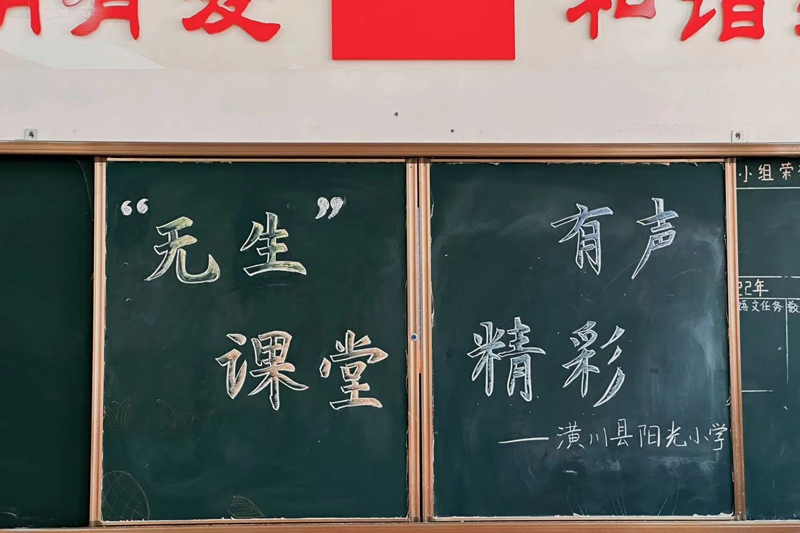 有爱
和谐
“无生”
课堂
有声
精彩
——潢川县阳光小学
小组荣
22年
语文任务